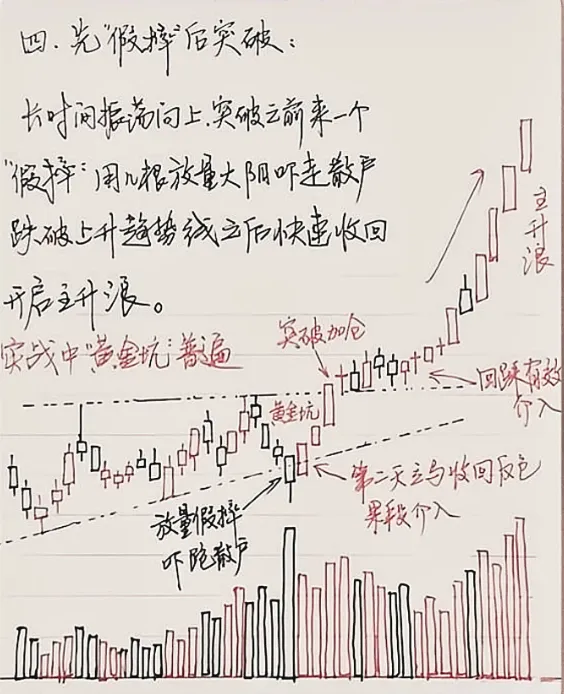 四.先“假摔”后突破:
长时间振荡向上.突破之前来一个
“假摔”:用几根放量大阴吓走散户
跌破上升趋势线之后快速收回
开启主升浪。
实战中“黄金坑”普遍
突破加仓
主升浪
回踩有效
介入
黄金坑
第二天立马收回反包
果段介入
放量假摔
吓跑散户